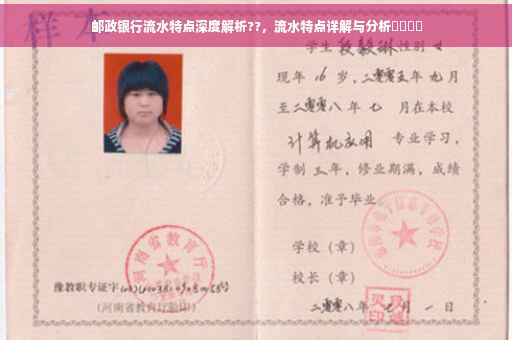 邮政银行流水特点深度解析??，流水特点详解与分析
样本
学生段毅琳性别 女
现年 16 岁，二零零五年 九月
至二零零八年 七 月在本校
计算机应用 专业学习，
学制 三年，修业期满，成绩
合格，准予毕业
学校（章）
校长（章）
二零零八年 七月 一日
河南省教育厅
豫教职专证字
（河南省教育厅验印）